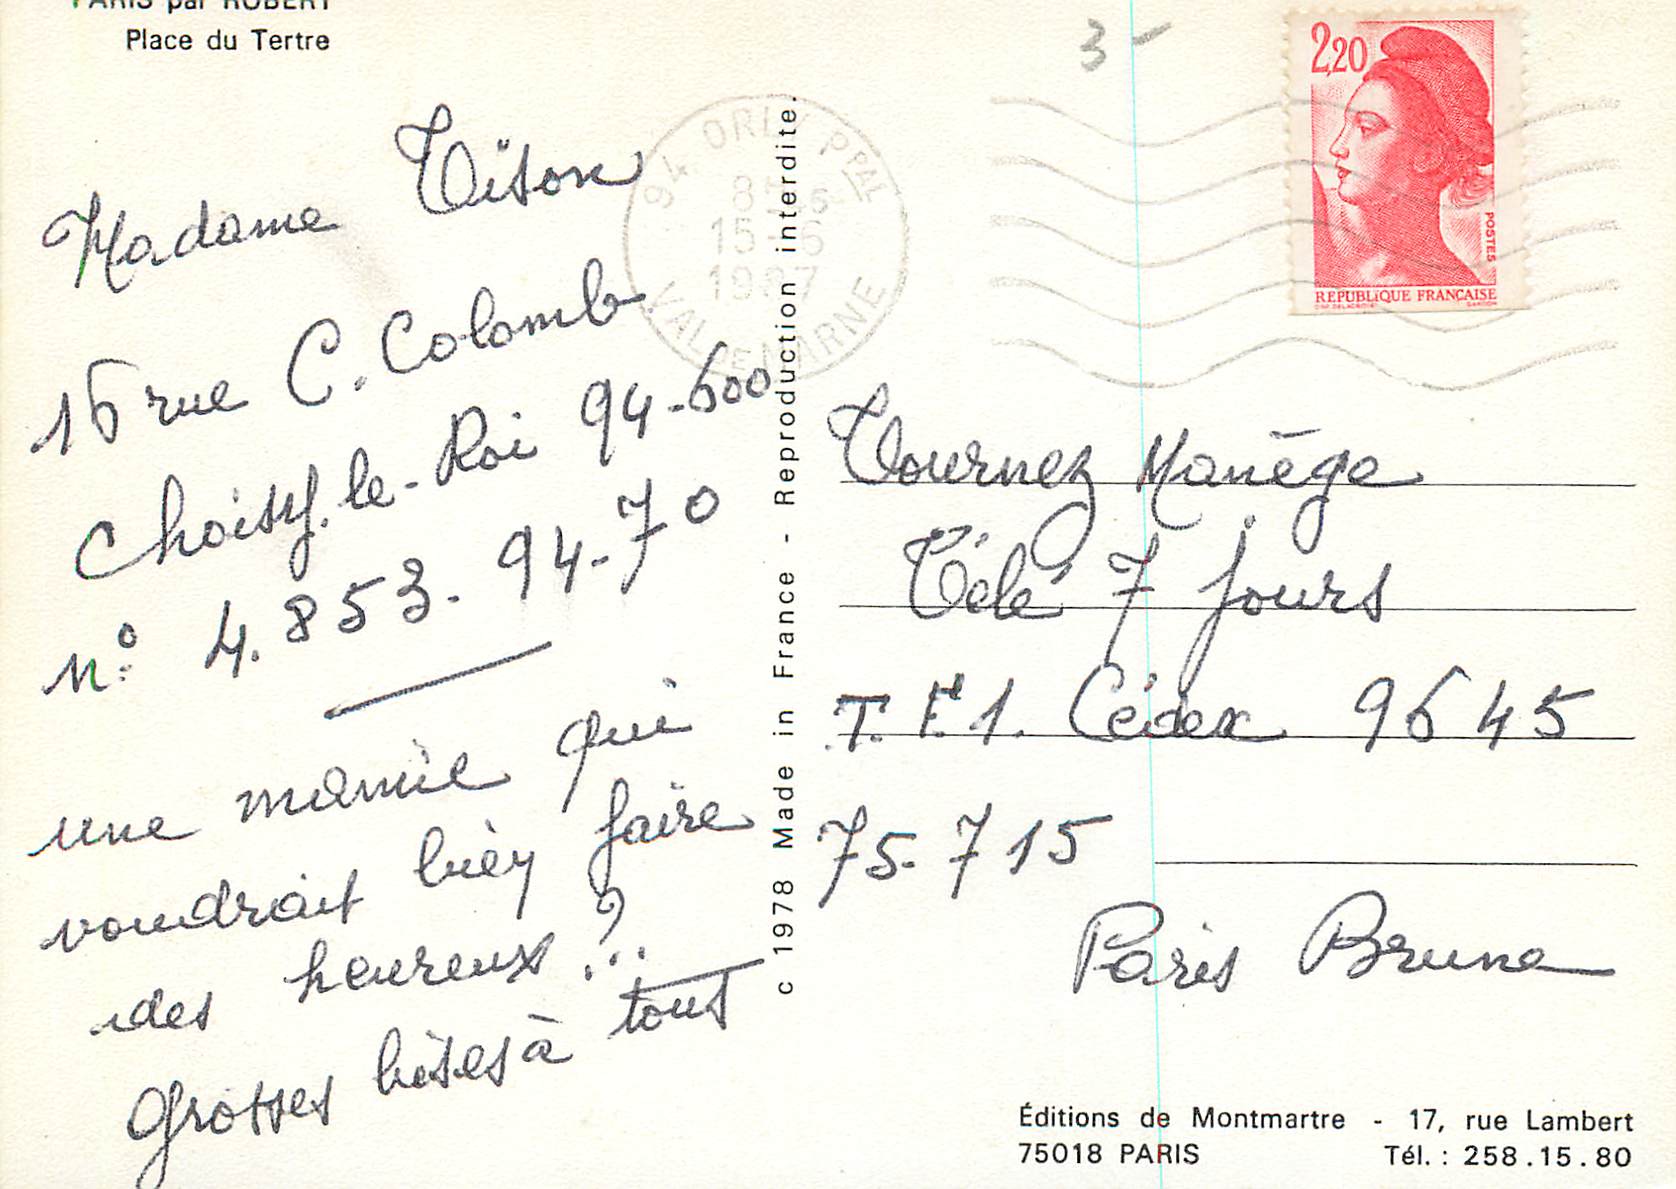 PARIS par ROBERT
Place du Tertre
3 -
2,20
POSTES
REPUBLIQUE FRANÇAISE
94 ORLY PPAL
15-6
1987
VAL DE MARNE
Madame Tison
16 rue C. Colomb
Choisy.le-Roi 94-600
n° 4.853. 94-70
une mamie qui
voudrait bien faire
des heureux ?...
Grosses bises à tous
c 1978 Made in France - Reproduction interdite.
Tournez Manège
Télé 7 jours
T.F.1. Cédex 9645
75-715
Paris Brune
Éditions de Montmartre - 17, rue Lambert
75018 PARIS Tél. : 258.15.80